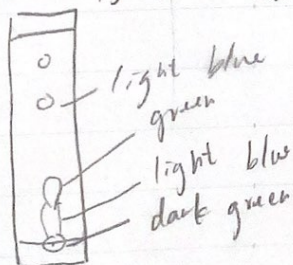 light blue
green
light blue
dark green